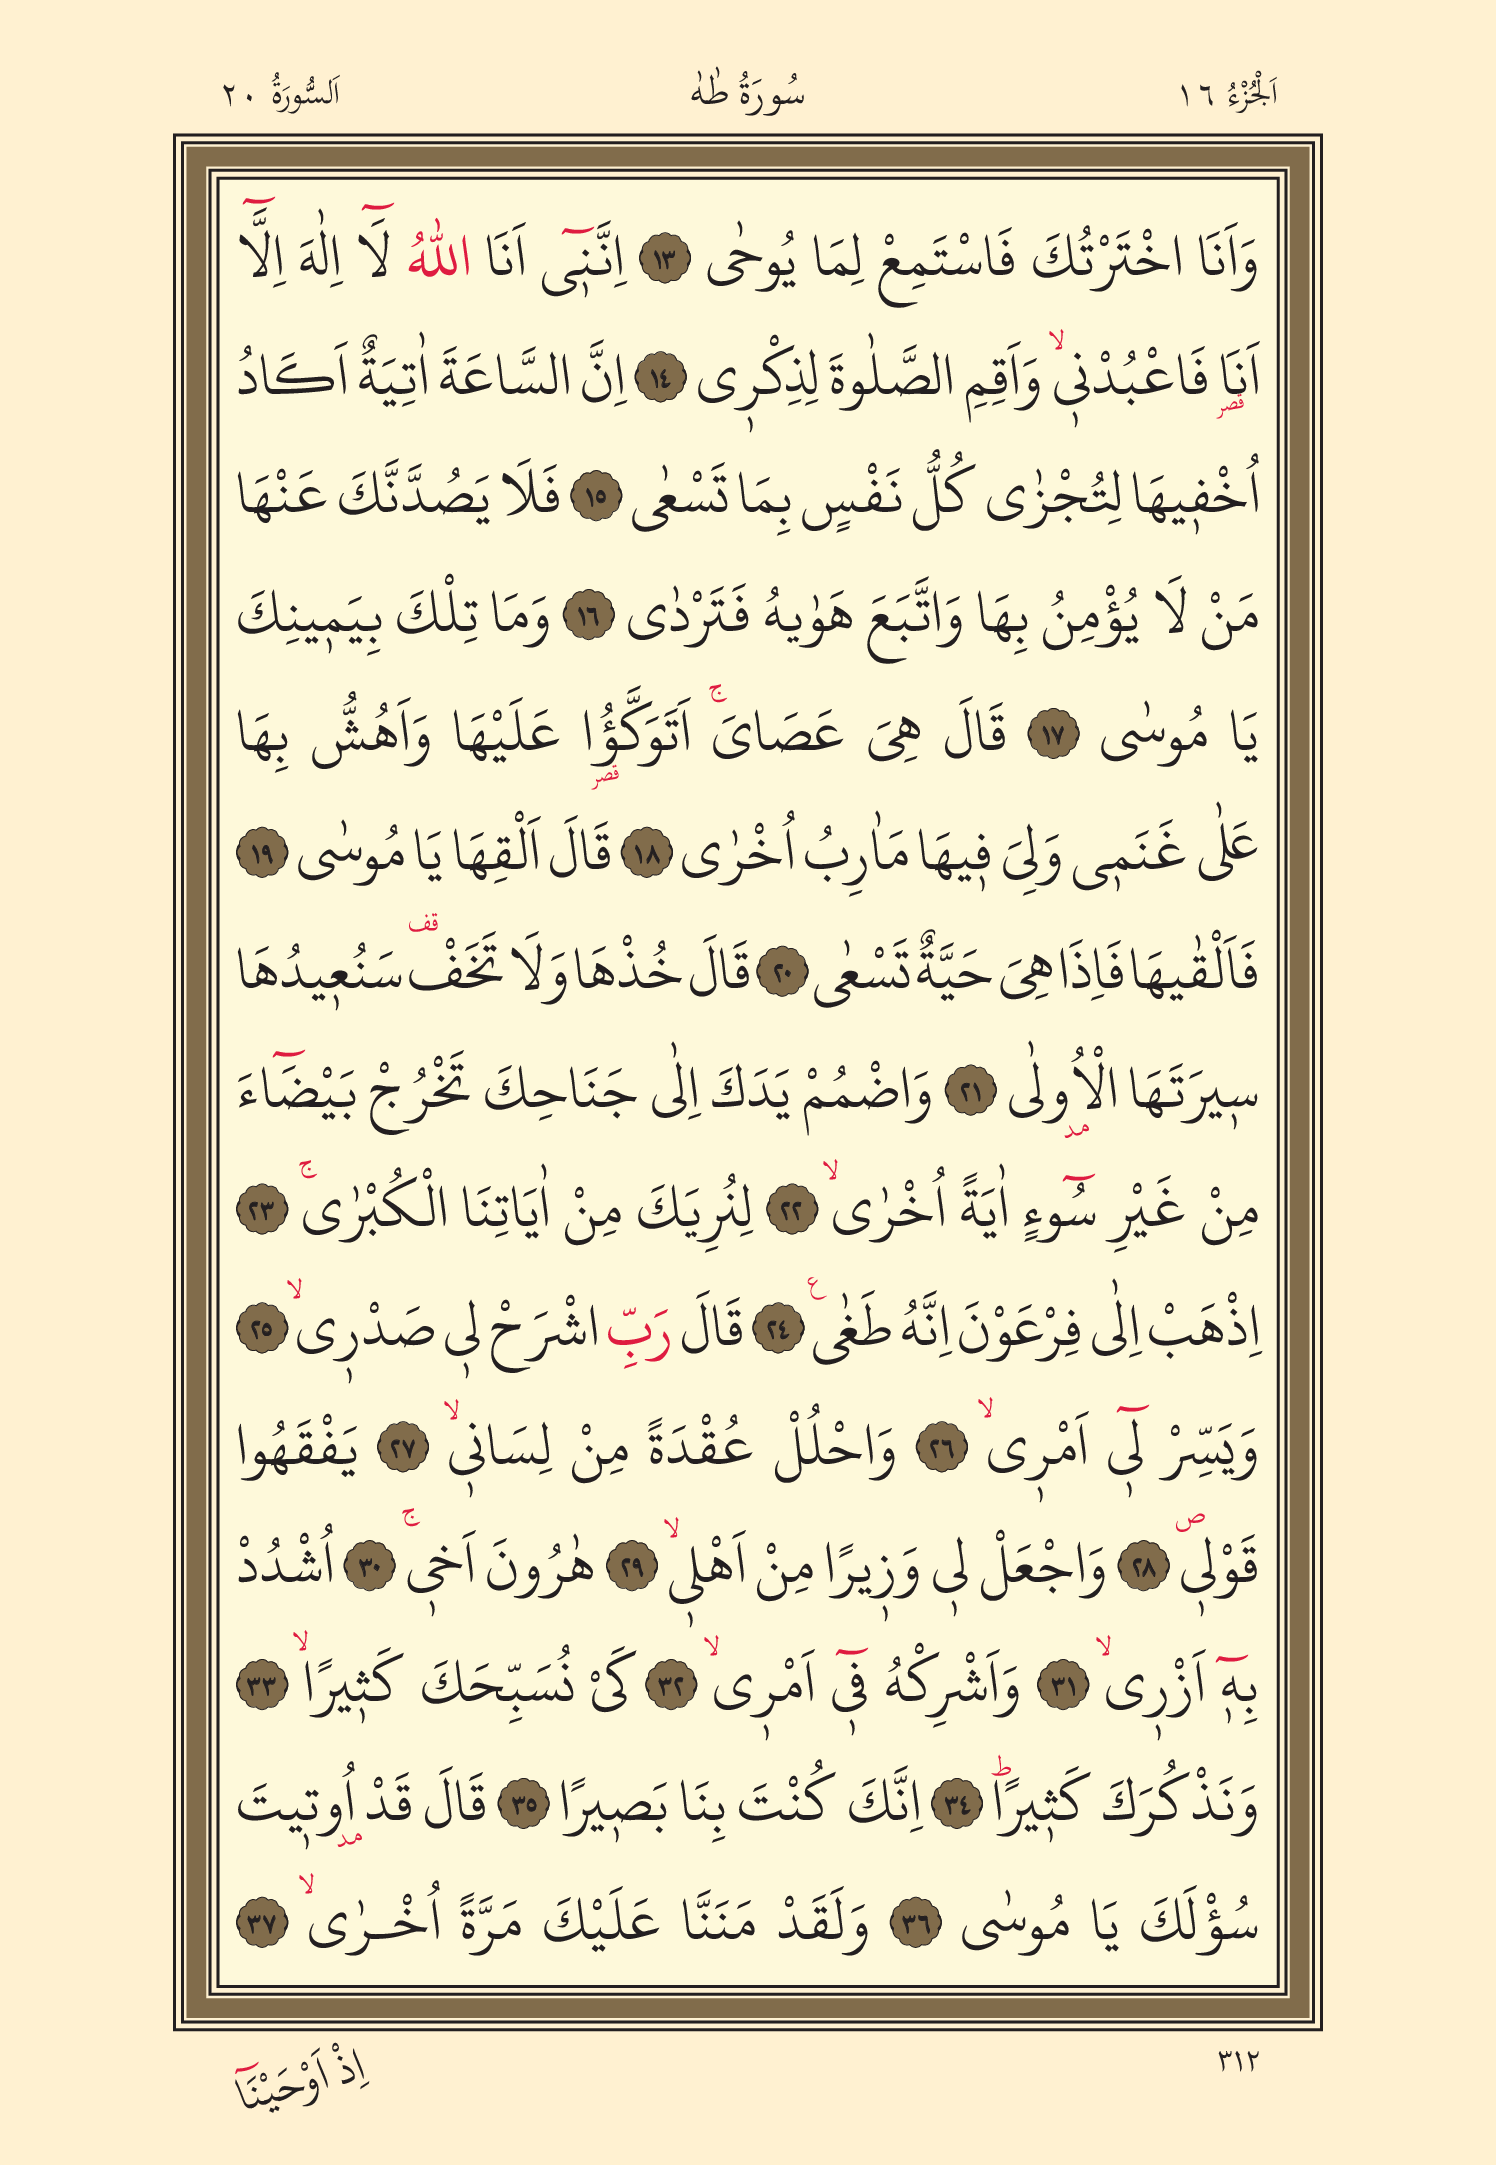 اَلْجُزْءُ ١٦
سُورَةُ طٰهٰ
اَلسُّورَةُ ٢٠
وَاَنَا اخْتَرْتُكَ فَاسْتَمِعْ لِمَا يُوحٰى ١٣ اِنَّنٖٓى اَنَا اللّٰهُ لَٓا اِلٰهَ اِلَّٓا
اَنَا۬ فَاعْبُدْنٖىۙ وَاَقِمِ الصَّلٰوةَ لِذِكْرٖى ١٤ اِنَّ السَّاعَةَ اٰتِيَةٌ اَكَادُ
قصر
اُخْفٖيهَا لِتُجْزٰى كُلُّ نَفْسٍ بِمَا تَسْعٰى ١٥ فَلَا يَصُدَّنَّكَ عَنْهَا
مَنْ لَا يُؤْمِنُ بِهَا وَاتَّبَعَ هَوٰيهُ فَتَرْدٰى ١٦ وَمَا تِلْكَ بِيَمٖينِكَ
يَا مُوسٰى ١٧ قَالَ هِىَ عَصَاىَۚ اَتَوَكَّؤُ۬ا عَلَيْهَا وَاَهُشُّ بِهَا
قصر
عَلٰى غَنَمٖى وَلِىَ فٖيهَا مَاٰرِبُ اُخْرٰى ١٨ قَالَ اَلْقِهَا يَا مُوسٰى ١٩
فَاَلْقٰيهَا فَاِذَا هِىَ حَيَّةٌ تَسْعٰى ٢٠ قَالَ خُذْهَا وَلَا تَخَفْ قف سَنُعٖيدُهَا
سٖيرَتَهَا الْاُولٰى ٢١ وَاضْمُمْ يَدَكَ اِلٰى جَنَاحِكَ تَخْرُجْ بَيْضَٓاءَ
مد
مِنْ غَيْرِ سُٓوءٍ اٰيَةً اُخْرٰىۙ ٢٢ لِنُرِيَكَ مِنْ اٰيَاتِنَا الْكُبْرٰىۚ ٢٣
اِذْهَبْ اِلٰى فِرْعَوْنَ اِنَّهُ طَغٰى ع ٢٤ قَالَ رَبِّ اشْرَحْ لٖى صَدْرٖىۙ ٢٥
وَيَسِّرْ لٖٓى اَمْرٖىۙ ٢٦ وَاحْلُلْ عُقْدَةً مِنْ لِسَانٖىۙ ٢٧ يَفْقَهُوا
قَوْلٖى ص ٢٨ وَاجْعَلْ لٖى وَزٖيرًا مِنْ اَهْلٖىۙ ٢٩ هٰرُونَ اَخٖىۚ ٣٠ اُشْدُدْ
بِهٖٓ اَزْرٖىۙ ٣١ وَاَشْرِكْهُ فٖٓى اَمْرٖىۙ ٣٢ كَىْ نُسَبِّحَكَ كَثٖيرًاۙ ٣٣
وَنَذْكُرَكَ كَثٖيرًاؕ ٣٤ اِنَّكَ كُنْتَ بِنَا بَصٖيرًا ٣٥ قَالَ قَدْ اُوتٖيتَ
مد
سُؤْلَكَ يَا مُوسٰى ٣٦ وَلَقَدْ مَنَنَّا عَلَيْكَ مَرَّةً اُخْرٰىۙ ٣٧
٣١٢
اِذْ اَوْحَيْنَٓا